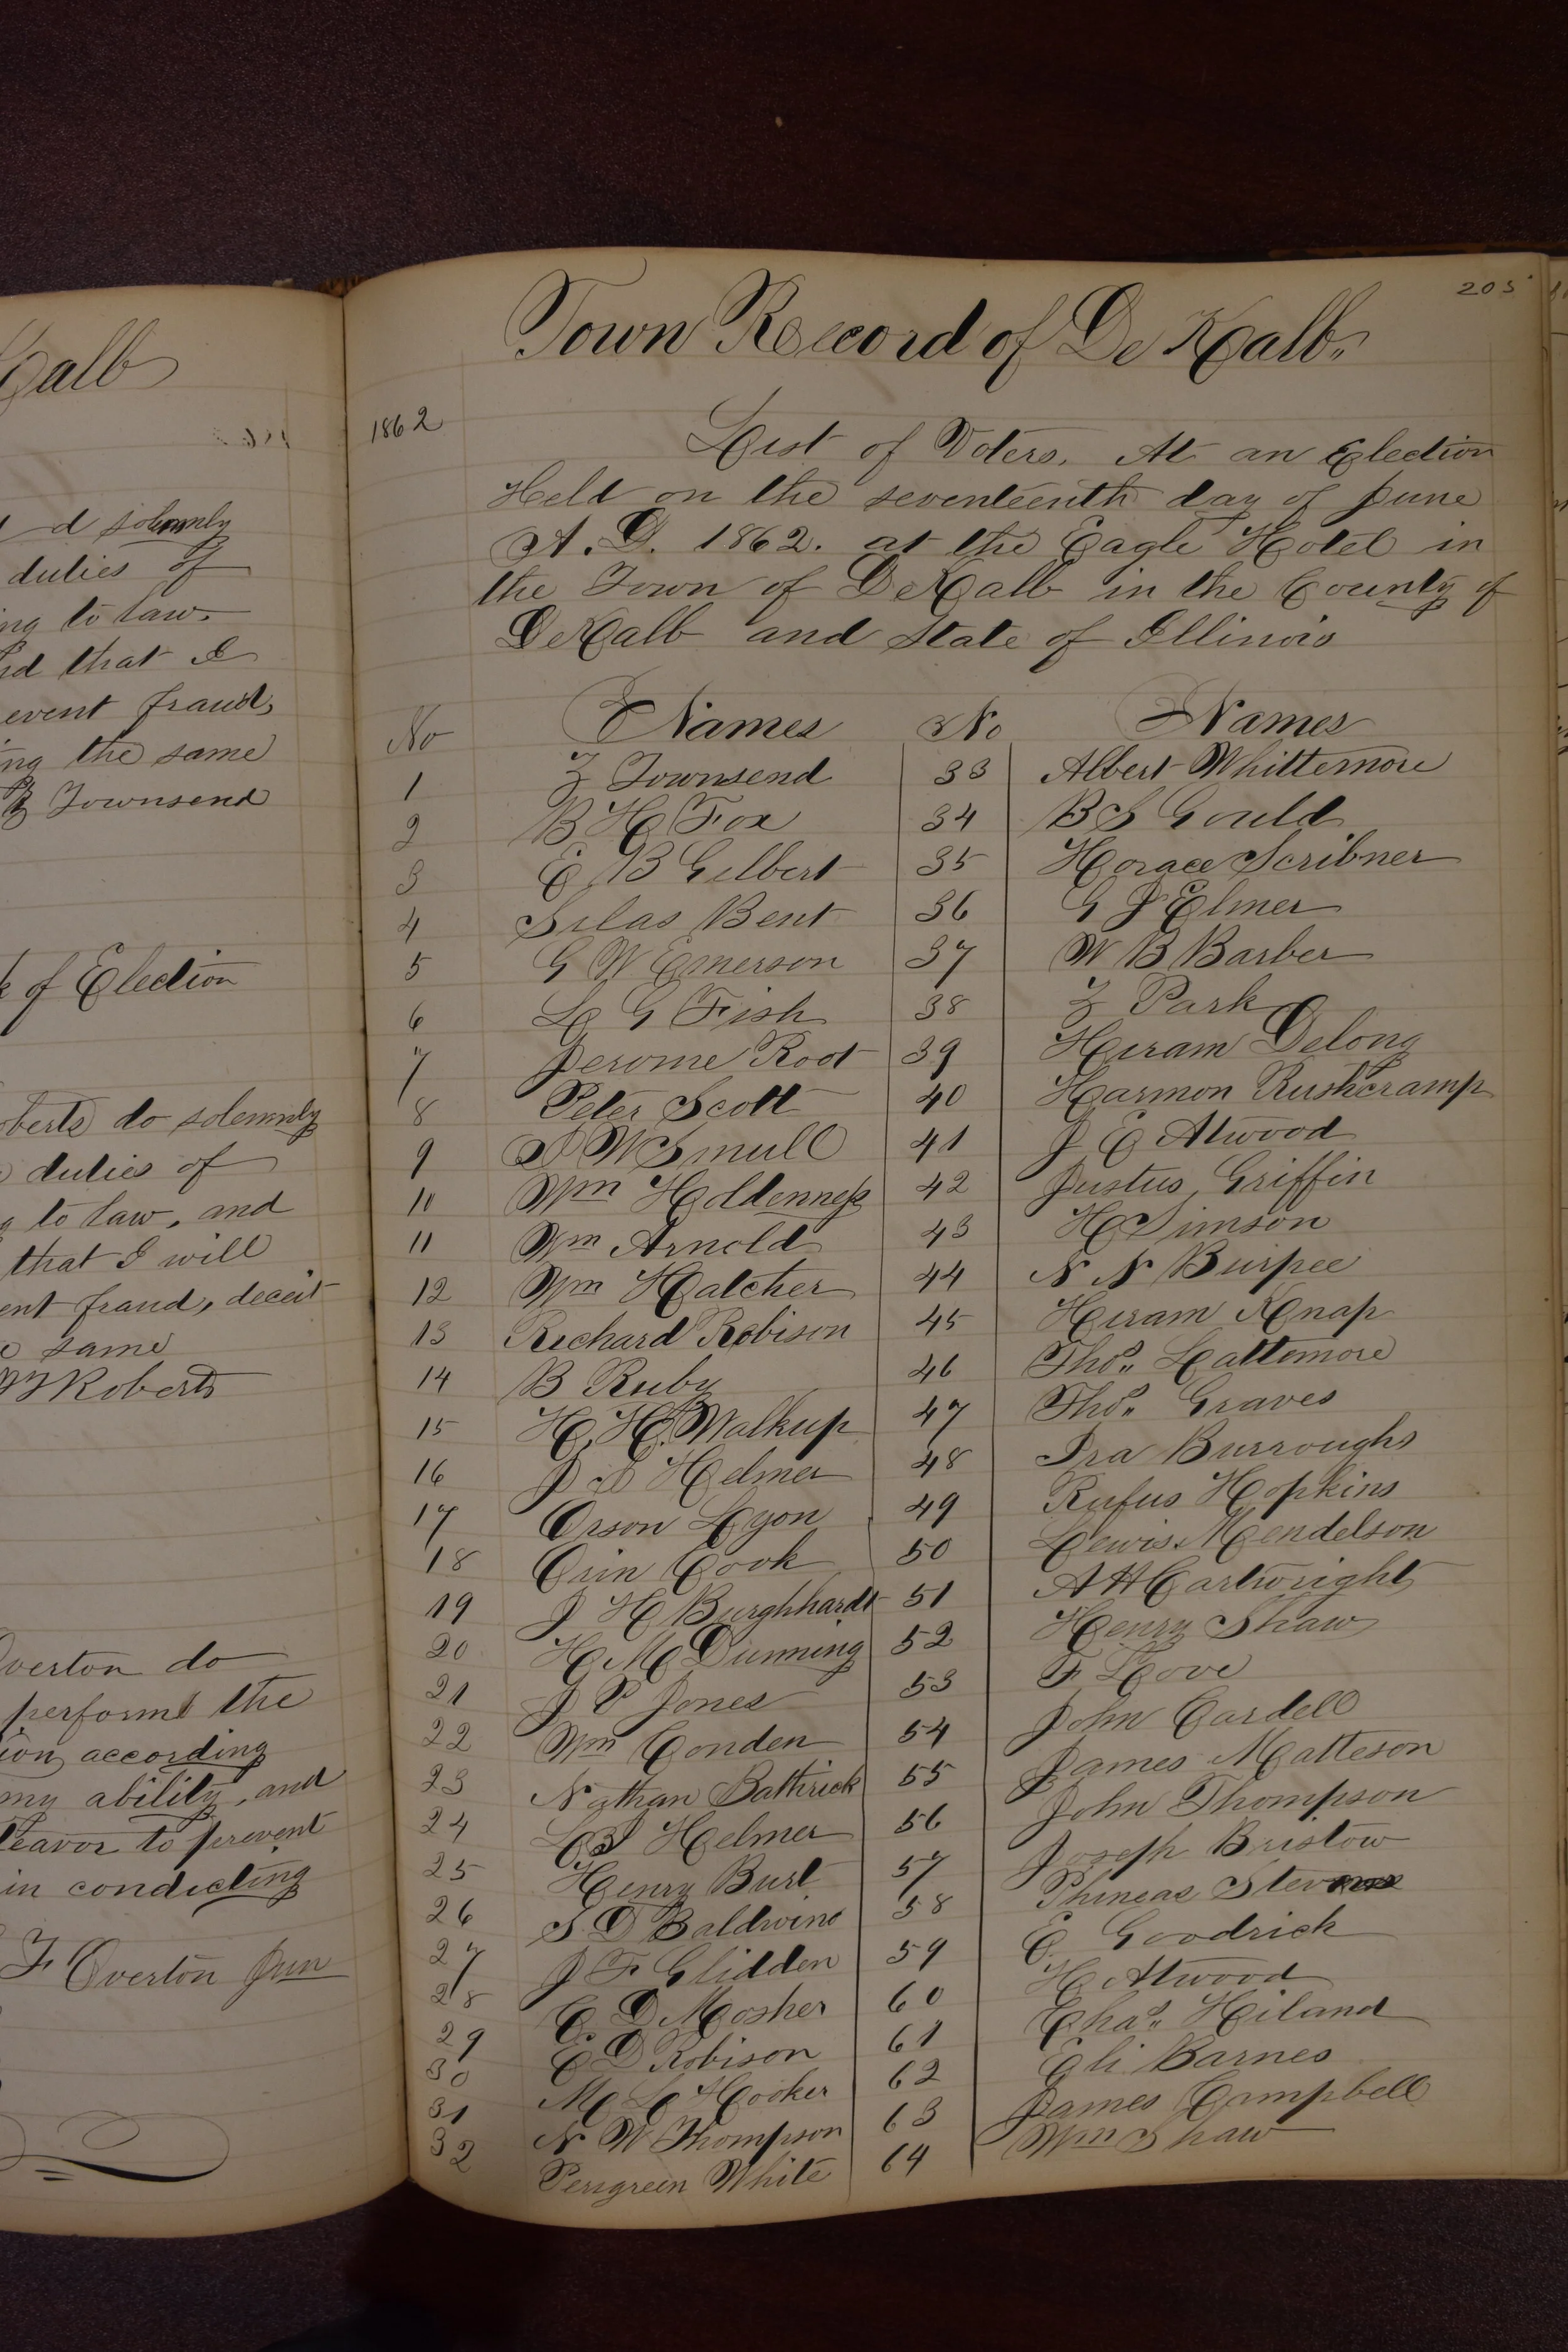 Kalb
d solemnly
duties of
ing to law.
and that I
event fraud,
ing the same
Z Townsend
k of Election
oberts do solemnly
duties of
g to law, and
that I will
ent fraud, deceit
e same
Roberts
Overton do
perform the
ion according
my ability, and
deavor to prevent
in condicting
F Overton Jun
205
Town Record of De Kalb.
1862
List of Voters. At an Election
Held on the seventeenth day of June
A. D. 1862. at the Eagle Hotel in
the Town of DeKalb in the County of
DeKalb and State of Illinois
No Names No Names
1 Z Townsend 33 Albert Whittemore
2 B H Fox 34 B S Gould
3 E B Gilbert 35 Horace Scribner
4 Silas Bent 36 G J Elmer
5 G W Emerson 37 W B Barber
6 L G Fish 38 Z Park
7 Jerome Root 39 Hiram Delong
8 Peter Scott 40 Harmon Rushcramp
9 S W Smull 41 J E Atwood
10 Wm Holdenness 42 Justus Griffin
11 Wm Arnold 43 H Simson
12 Wm Hatcher 44 N N Burpee
13 Richard Robison 45 Hiram Knap
14 B Ruby 46 Thos. Lattemore
15 H. H. Walkup 47 Thos. Graves
16 J S Helmer 48 Ira Burroughs
17 Orson Lyon 49 Rufus Hopkins
18 Orin Cook 50 Lewis Mendelson
19 J H Burghhardt 51 A H Cartwright
20 H M Dunning 52 Henry Shaw
21 J P Jones 53 F Love
22 Wm Conden 54 John Cardell
23 Nathan Bathrick 55 James Matteson
24 Helmer 56 John Thompson
25 Henry Burt 57 Joseph Bristow
26 S D Baldwin 58 Phineas Stevens
27 J F Glidden 59 E. Goodrick
28 C. D Mosher 60 H Atwood
29 C D Robison 61 Chas. Hiland
30 M L Hooker 62 Eli Barnes
31 N W Thompson 63 James Campbell
32 Perigreen White 64 Wm Shaw